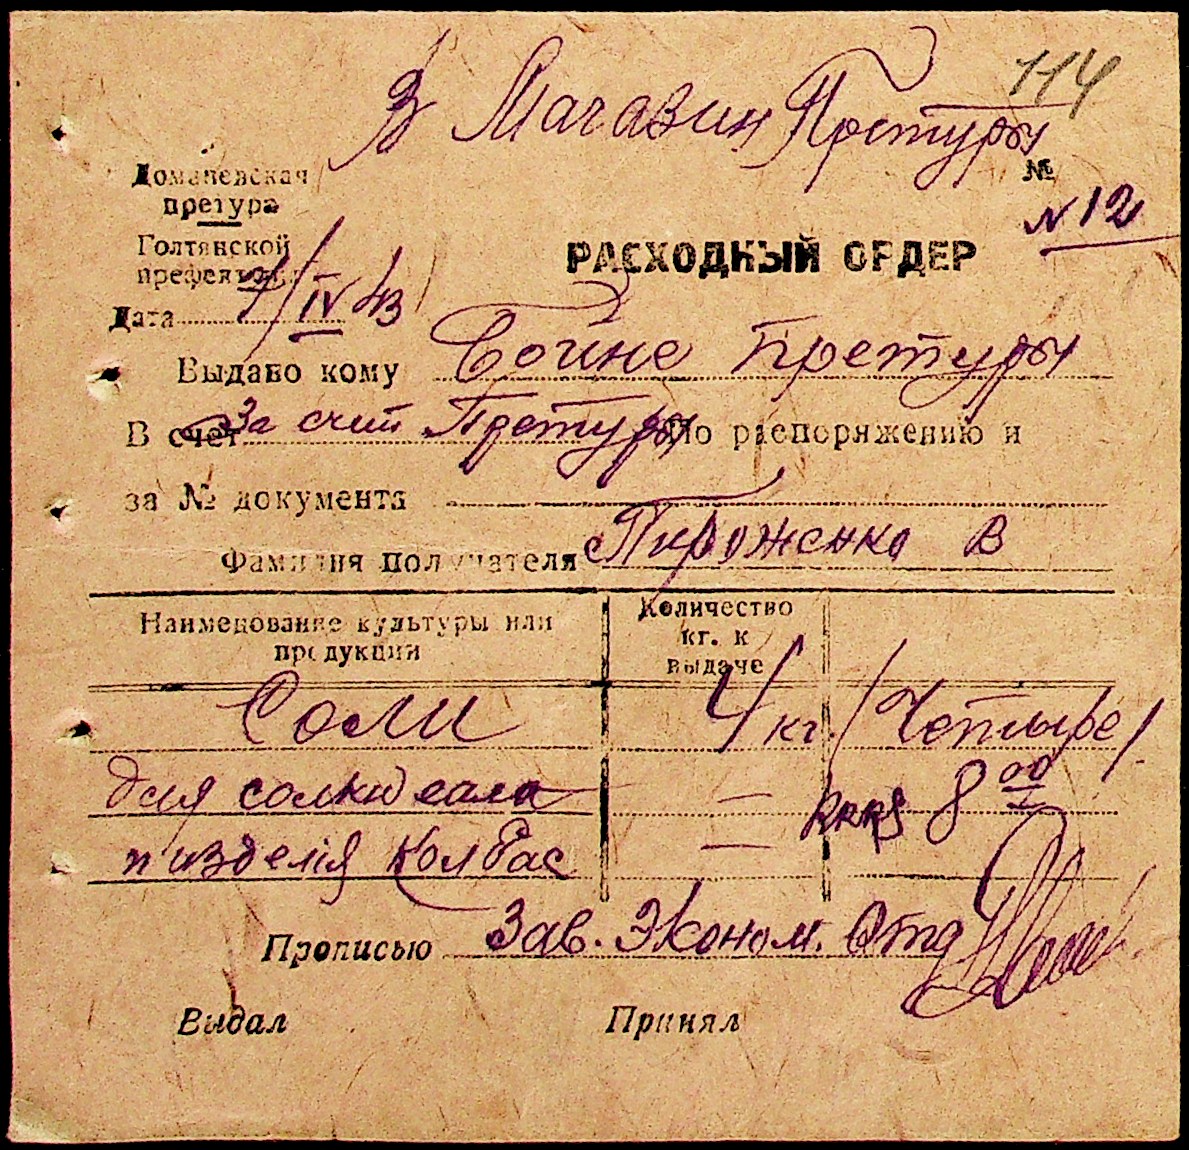 114
В Магазин Претуры
Доманевская
претура
№
№ 12
Голтянской
префектуры
РАСХОДНЫЙ ОРДЕР
Дата 1/IV 43
Выдано кому Бойне Претуры
В счет За счит Претуры По распоряжению и
за № документа
Фамилия получателя Пироженко В
Наименование культуры или продукции
Количество кг. к выдаче
Соли 4 кг. /Четыре/
для солки сала — 8 00
и изделія Колбас —
Прописью Зав. Эконом. Отд
Выдал Принял